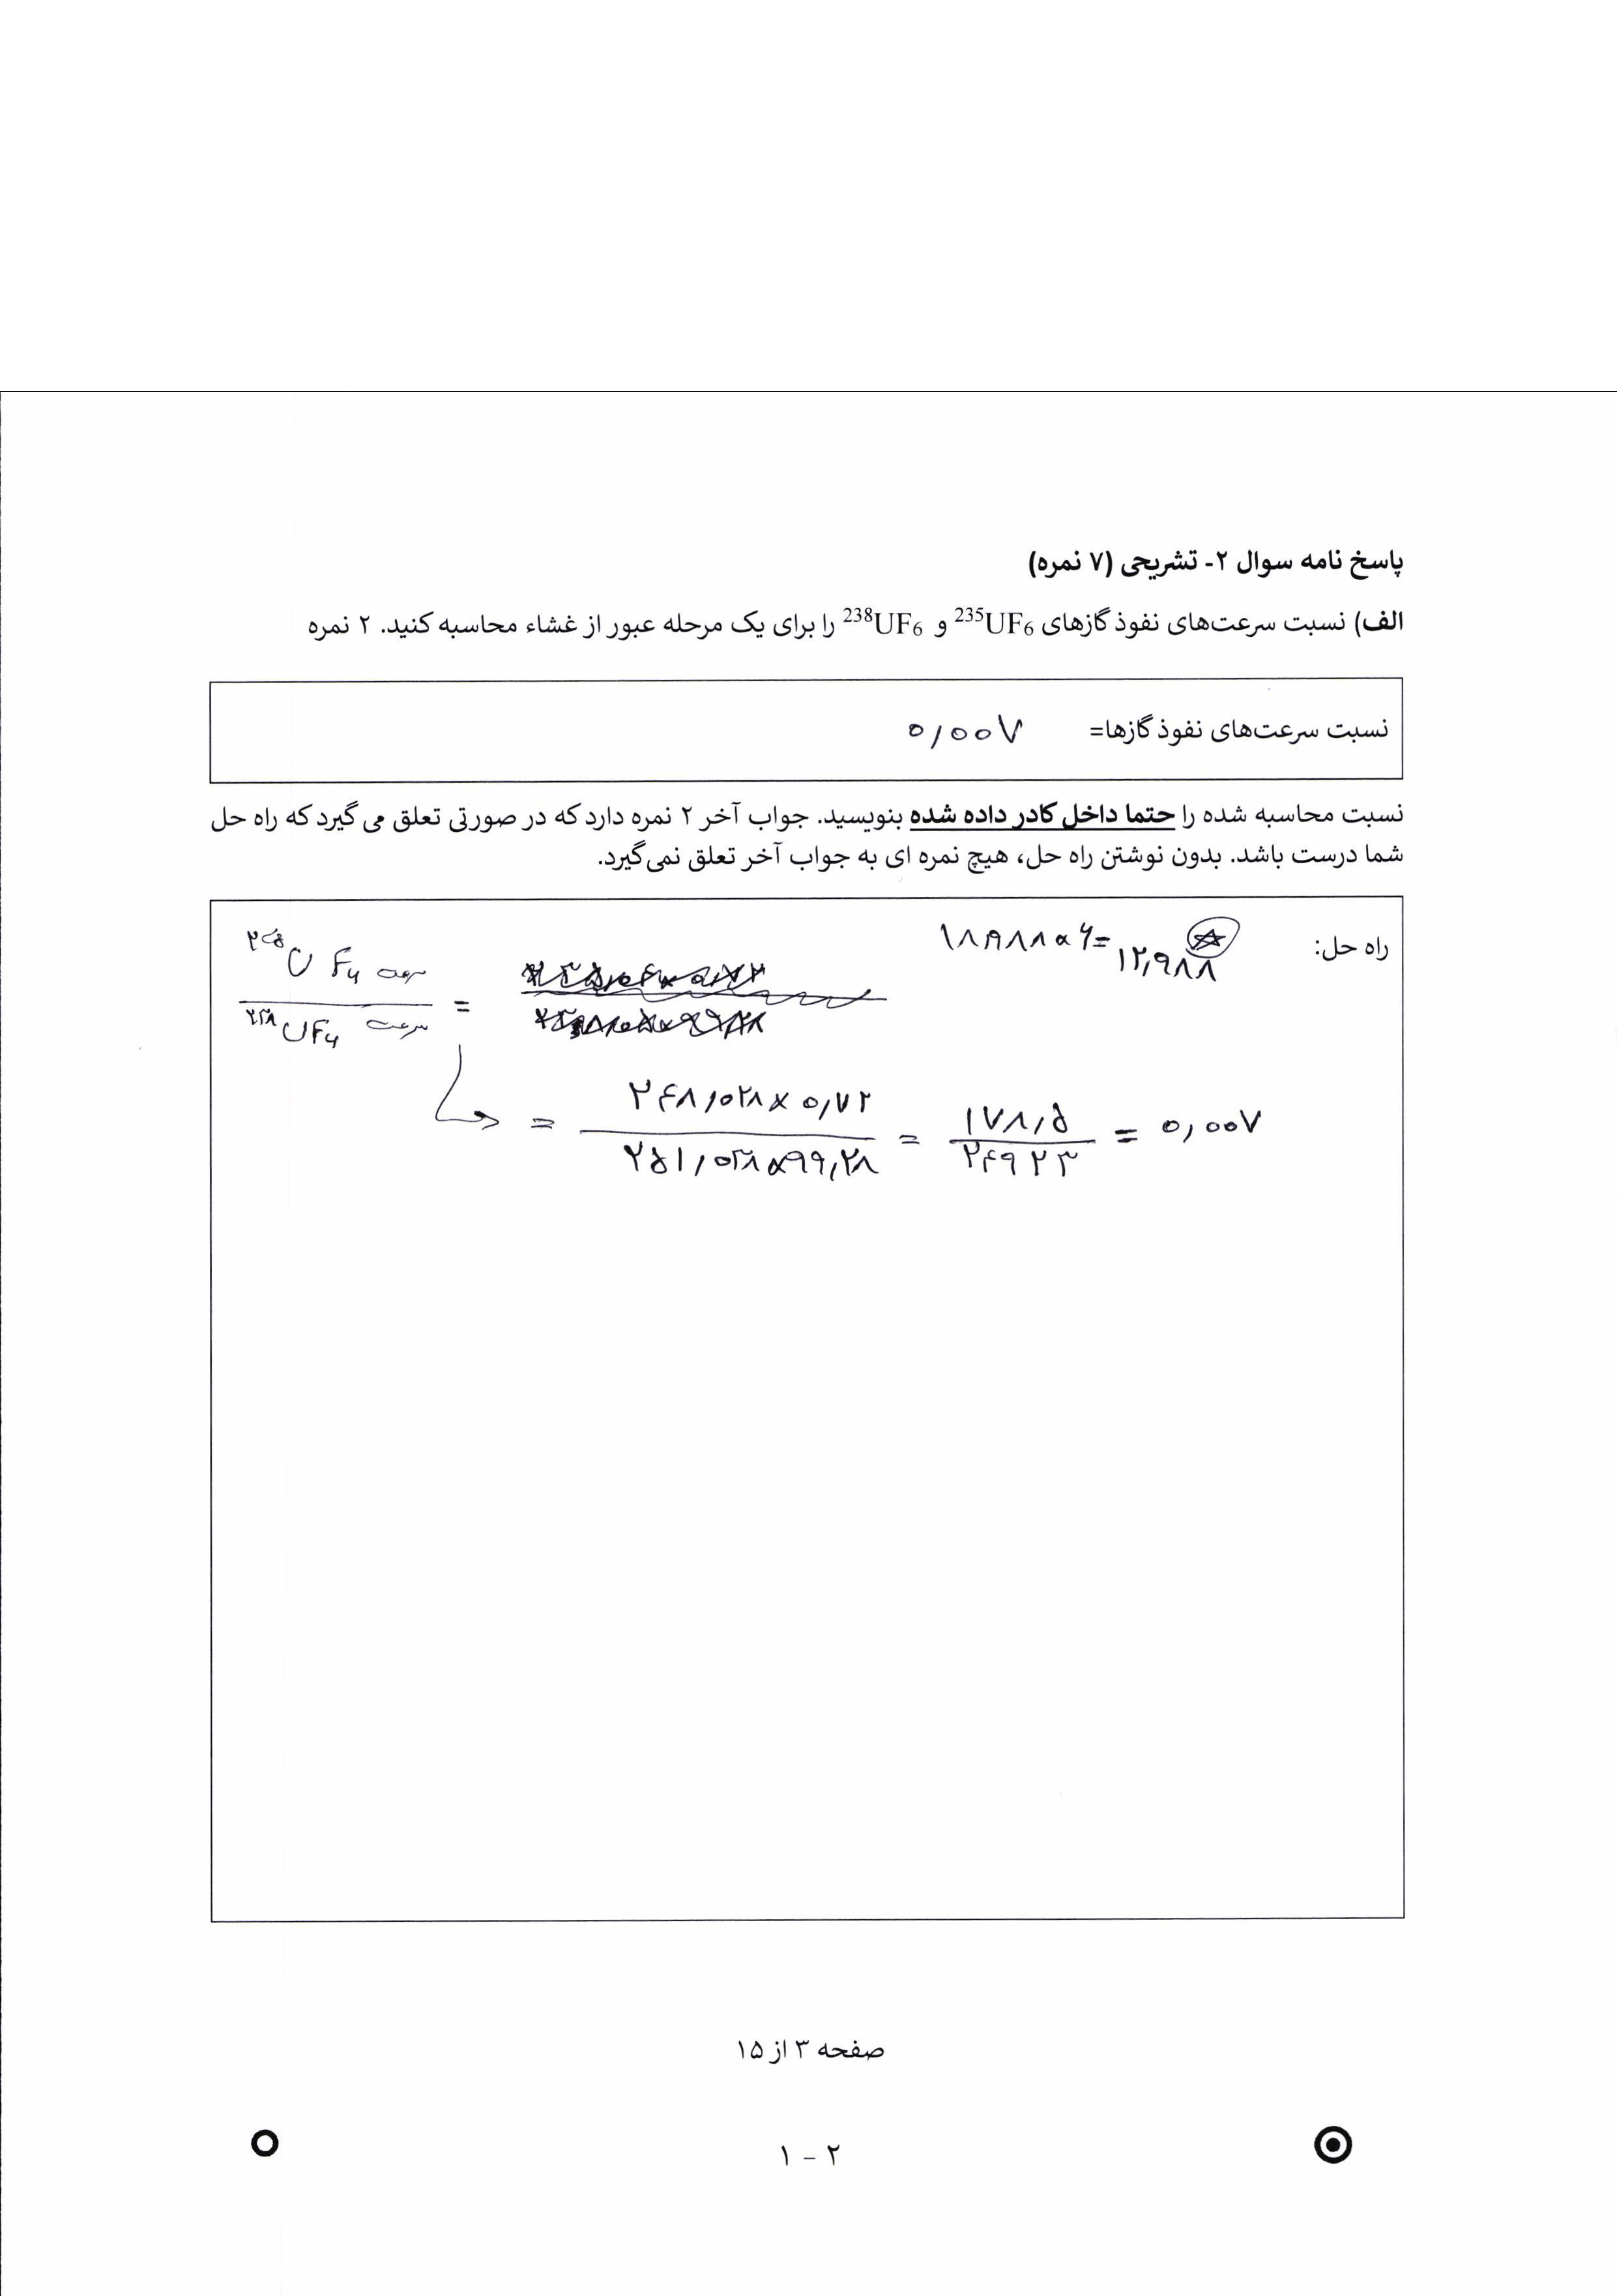 پاسخ نامه سوال ۲- تشریحی (۷ نمره)
الف) نسبت سرعت‌های نفوذ گازهای 235UF6 و 238UF6 را برای یک مرحله عبور از غشاء محاسبه کنید. ۲ نمره
نسبت سرعت‌های نفوذ گازها= ۰٫۰۰۷
نسبت محاسبه شده را حتما داخل کادر داده شده بنویسید. جواب آخر ۲ نمره دارد که در صورتی تعلق می گیرد که راه حل
شما درست باشد. بدون نوشتن راه حل، هیچ نمره ای به جواب آخر تعلق نمی‌گیرد.
راه حل:
۱۸٫۹۸۸×۶=۱۲٫۹۸۸
سرعت ۲۳۵UF۶ / سرعت ۲۳۸UF۶ =
= ۲۴۸٫۰۲۸×۰٫۷۲ / ۲۵۱٫۰۳۸×۹۹٫۲۸ = ۱۷۸٫۵ / ۲۴۹۲۳ = ۰٫۰۰۷
صفحه ۳ از ۱۵
۲ - ۱